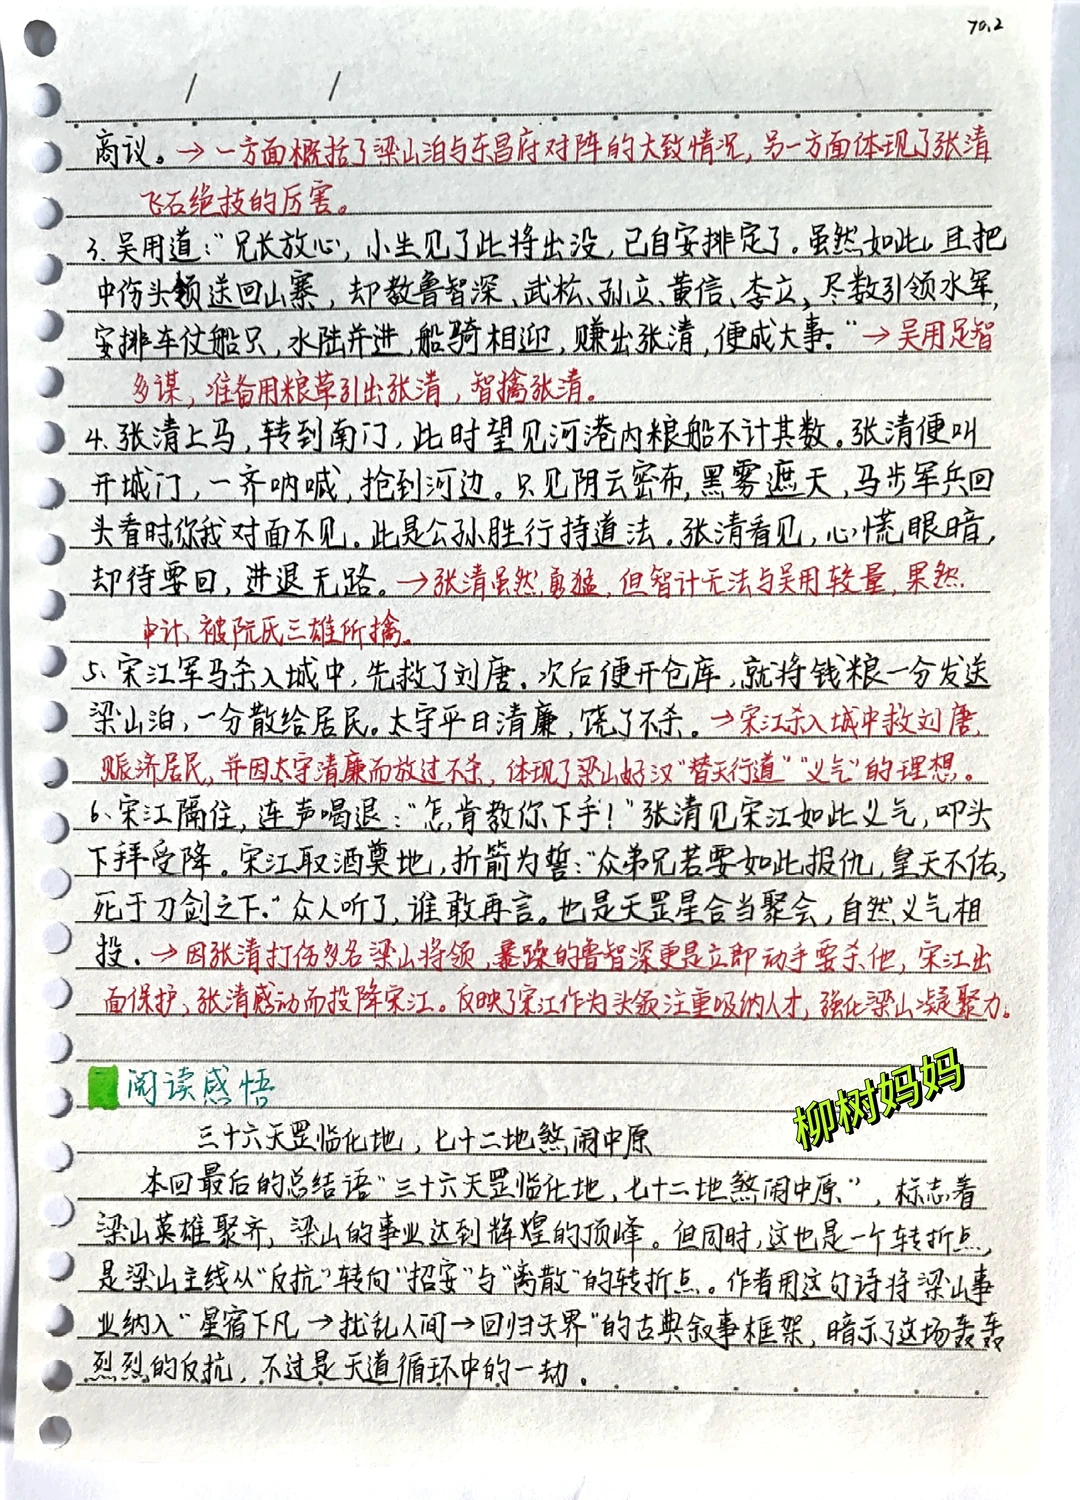 70.2
商议。→一方面概括了梁山泊与东昌府对阵的大致情况,另一方面体现了张清
飞石绝技的厉害。
3.吴用道:“兄长放心,小生见了此将出没,已自安排定了。虽然如此,且把
中伤头领送回山寨,却教鲁智深、武松、孙立、黄信、李立,尽数引领水军,
安排车仗船只,水陆并进,船骑相迎,赚出张清,便成大事。”→吴用足智
多谋,准备用粮草引出张清,智擒张清。
4.张清上马,转到南门,此时望见河港内粮船不计其数。张清便叫
开城门,一齐呐喊,抢到河边。只见阴云密布,黑雾遮天,马步军兵回
头看时你我对面不见。此是公孙胜行持道法。张清看见,心慌眼暗,
却待要回,进退无路。→张清虽然勇猛,但智计无法与吴用较量,果然
中计,被阮氏三雄所擒。
5、宋江军马杀入城中,先救了刘唐。次后便开仓库,就将钱粮一分发送
梁山泊,一分散给居民。太守平日清廉,饶了不杀。→宋江杀入城中救刘唐,
赈济居民,并因太守清廉而放过不杀,体现了梁山好汉“替天行道”“义气”的理想。
6、宋江隔住,连声喝退:“怎肯教你下手!”张清见宋江如此义气,叩头
下拜受降。宋江取酒奠地,折箭为誓:“众弟兄若要如此报仇,皇天不佑,
死于刀剑之下。”众人听了,谁敢再言。也是天罡星合当聚会,自然义气相
投。→因张清打伤多名梁山将领,暴躁的鲁智深更是立即动手要杀他,宋江出
面保护,张清感动而投降宋江。反映了宋江作为头领注重吸纳人才,强化梁山凝聚力。
阅读感悟
柳树妈妈
三十六天罡临化地,七十二地煞闹中原
本回最后的总结语“三十六天罡临化地,七十二地煞闹中原”,标志着
梁山英雄聚齐,梁山的事业达到辉煌的顶峰。但同时,这也是一个转折点,
是梁山主线从“反抗”转向“招安”与“离散”的转折点。作者用这句诗将梁山事
业纳入“星宿下凡→扰乱人间→回归天界”的古典叙事框架,暗示了这场轰轰
烈烈的反抗,不过是天道循环中的一劫。